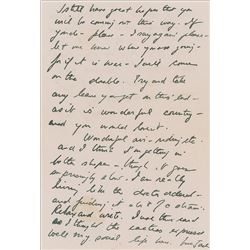 I still have great hopes that you
will be coming out this way. If
you do - please - I say again please -
let me know when you are going -
for if it is near - I will come
on the double. Try and take
any leave you get on this end -
as it is wonderful country -
and you would love it.
Wonderful air - riding etc
and I think I'm getting in
better shape - though it goes
slow. I am really
living like the doctor ordered -
and finding it a bit
and wrote. I sent this card
as I thought the cactus expressed
well my